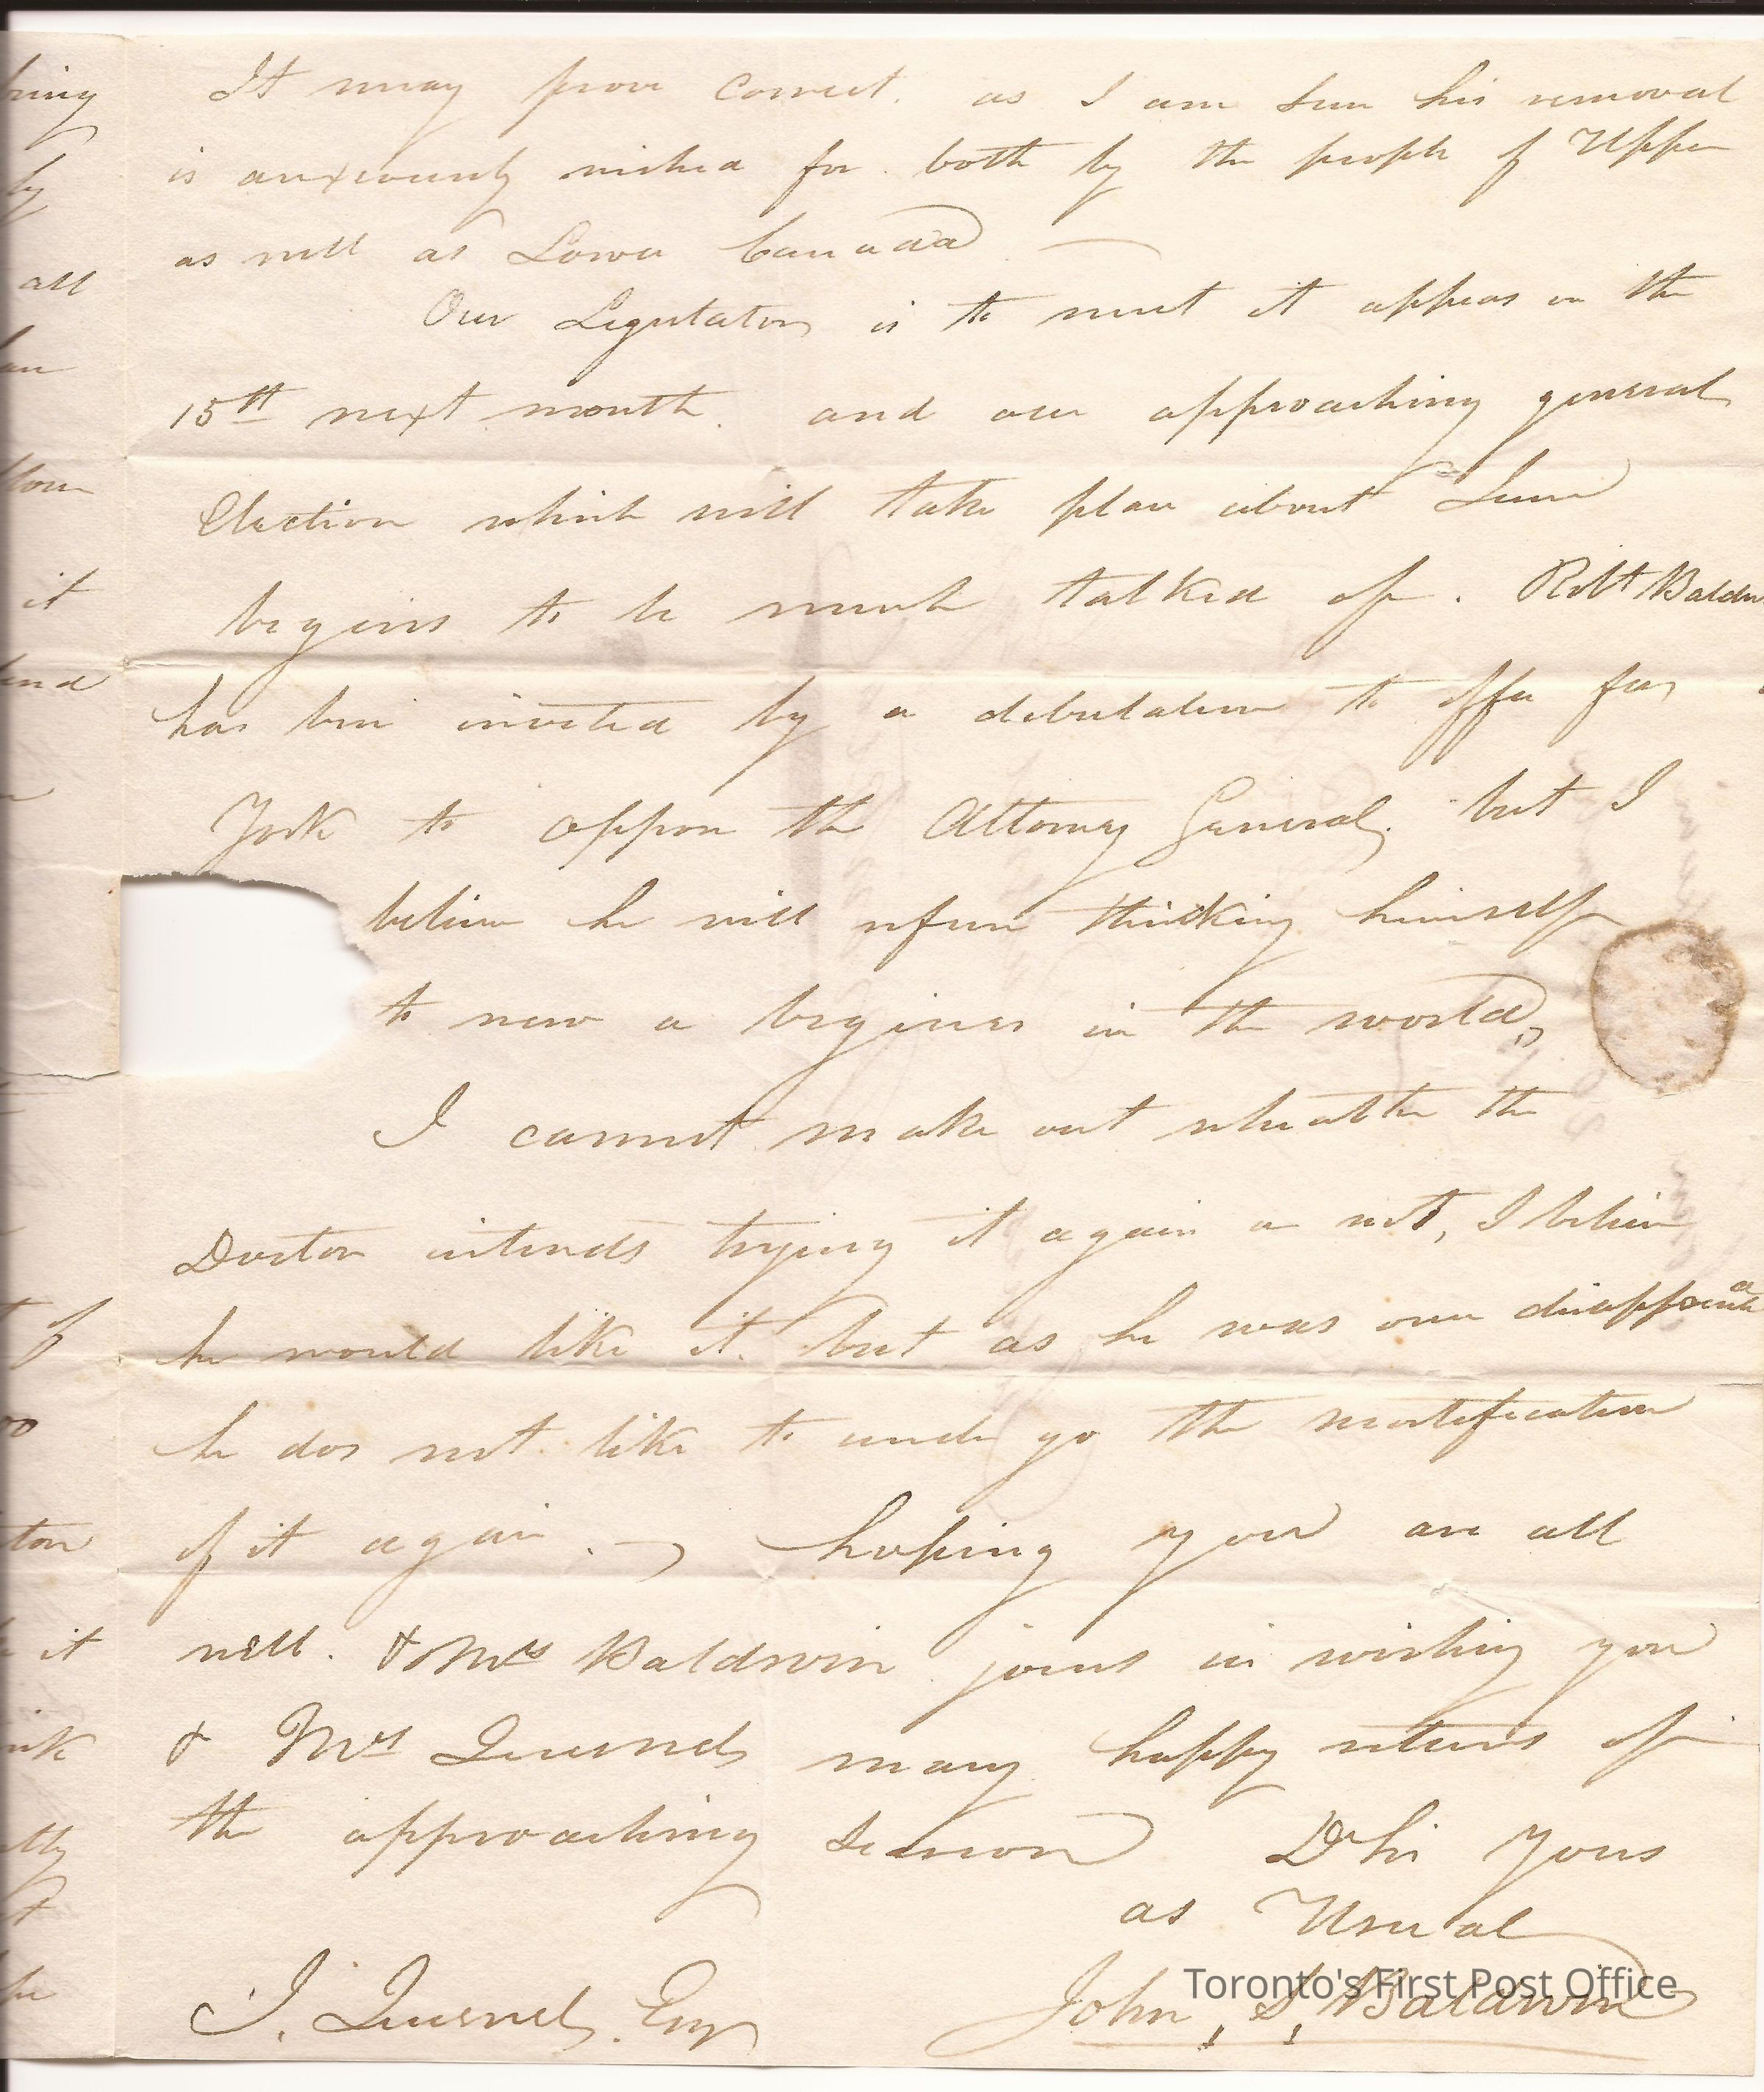 It may prove correct. as I am sure his removal
is anxiously wished for both by the people of Upper
as well as Lower Canada —
Our Legislature is to meet it appears on the
15th next month. and our approaching general
Election which will take place about June
begins to be much talked of. Robt Baldwin
has been invited by a debutation to offer for
York to oppose the Attorney General, but I
believe he will refuse thinking himself
to new a beginer in the world,
I cannot make out wheather the
Doctor intends trying it again or not, I believe
he would like it. but as he was once disappointed
he does not like to under go the mortification
of it again. — hoping you are all
well. & Mrs Baldwin joins in wishing you
& Mrs Quesnel many happy returns of
the approaching season Yours
as Usual
J. Quesnel, Esqr John S. Baldwin
Toronto's First Post Office
bring
by
all
it
and
of
it